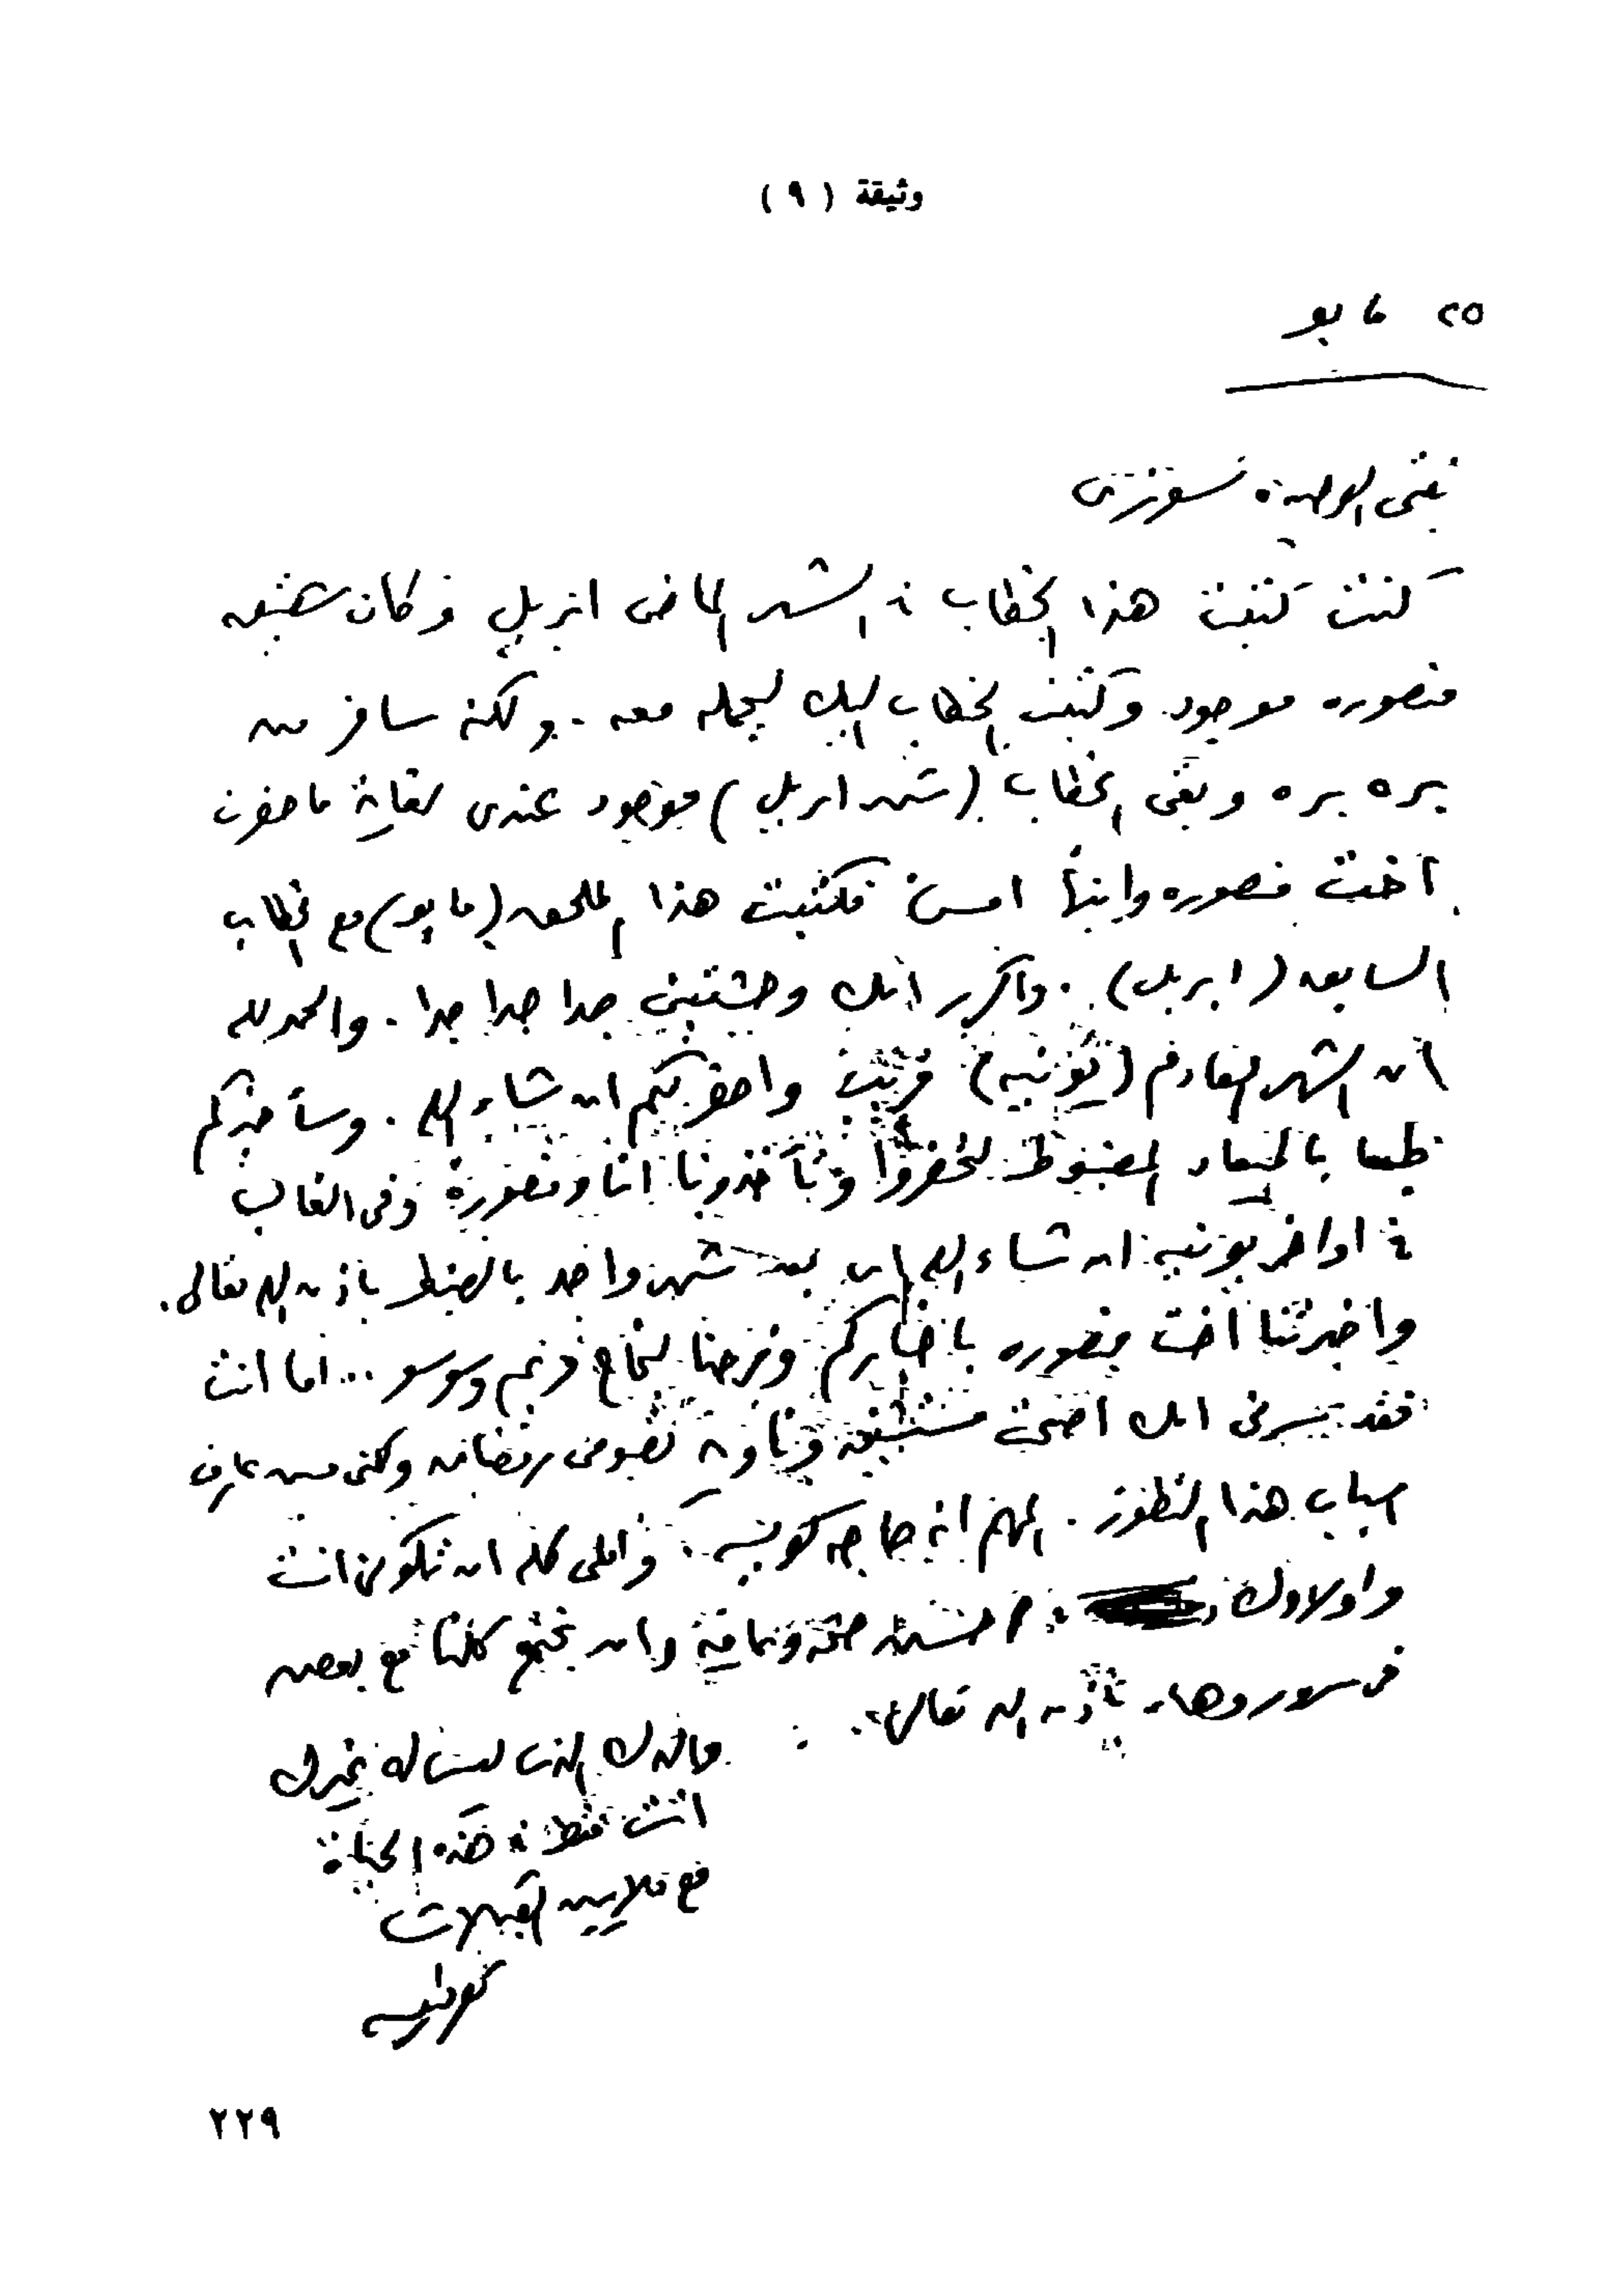 وثيقة ( ٩ )
٢٥ مايو
بنتى الوحيدة سوزى
كنت كتبت هذا الخطاب فى الشهر الماضى ابريل وكان شقيق
منصوره موجود وكتبت الخطاب اليك ليحمله معه . ولكنه سافر من
بره بره وبقى الخطاب (شهر ابريل) موجود عندى لغاية ما حضرت
أخت منصوره وابنها امس فكتبت هذا الملحق (مايو) مع الخطاب
السابق (ابريل) . وأكرر انك وحشتينى جدا جدا جدا . والحمد لله
أن الشهر القادم (يونيه) قريب واحضر لكم ان شاء الله . وسأخبركم
طبعا بالميعاد المضبوط لتحضروا وتأخذونا انا ومنصورة وفى الغالب
فى اواخر يونيه ان شاء الله اى بعد شهر واحد بالضبط باذن الله تعالى .
واخبرتنا اخت منصوره باخباركم وفرحنا لنجاح مريم وسوسو ... اما انت
فقد سرنى انك اصبحت مستشيخه وناويه تصومى رمضان ولكنى مش عارف
اسباب هذا التطور . المهم انه حاجه كويسه . وأملى كله ان تكونى انت
واولادك فى احسن صحه وعافية وان نجتمع كلنا مع بعض
فى سرور وهناء باذن الله تعالى .
والدك الذى ليس له غيرك
انت فقط فى هذه الحياة
مع ملايين القبلات
٢٢٩